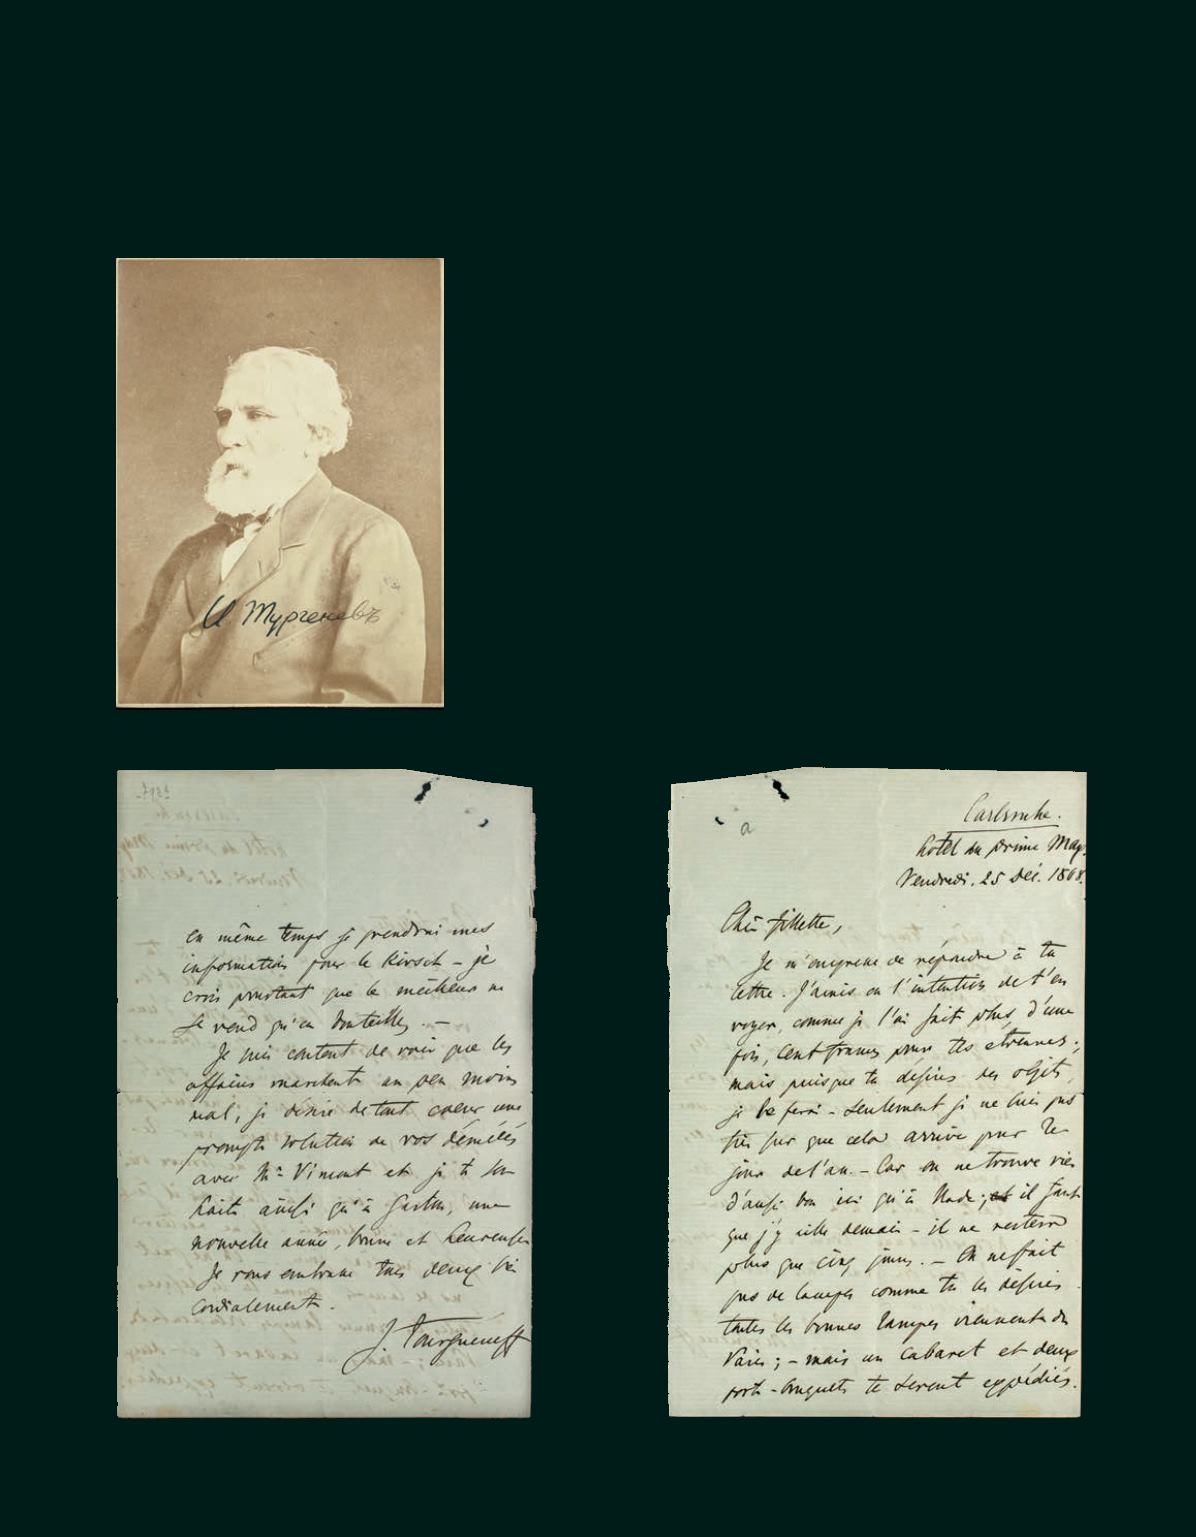 И Тургеневъ
Carlsruhe.
hôtel du prince Max.
Vendredi. 25 Déc. 1868.
Chère fillette,
Je m'empresse de répondre à ta
lettre. J'avais eu l'intention de t'en
voyer, comme je l'ai fait plus d'une
fois, cent francs pour tes étrennes;
mais puisque tu désires des objets,
je le ferai - seulement je ne suis pas
très sûr que cela arrive pour le
jour de l'an. - Car on ne trouve rien
d'aussi bon ici qu'à Bade; et il faut
que j'y aille demain - il ne restera
plus que cinq jours. - On ne fait
pas de lampes comme tu les désires
toutes les bonnes lampes viennent de
Paris; - mais un cabaret et deux
porte-bouquets te seront expédiés.
en même temps je prendrai mes
informations pour le Kirsch - je
crois pourtant que le meilleur ne
se vend qu'en bouteilles. -
Je suis content de voir que les
affaires marchent un peu moins
mal, je désire de tout coeur une
prompte solution de vos démêlés
avec Mr Vimont et je te sou
haite ainsi qu'à Gaston, une
nouvelle année, bonne et heureuse
Je vous embrasse tous deux bien
cordialement.
J. Tourgueneff